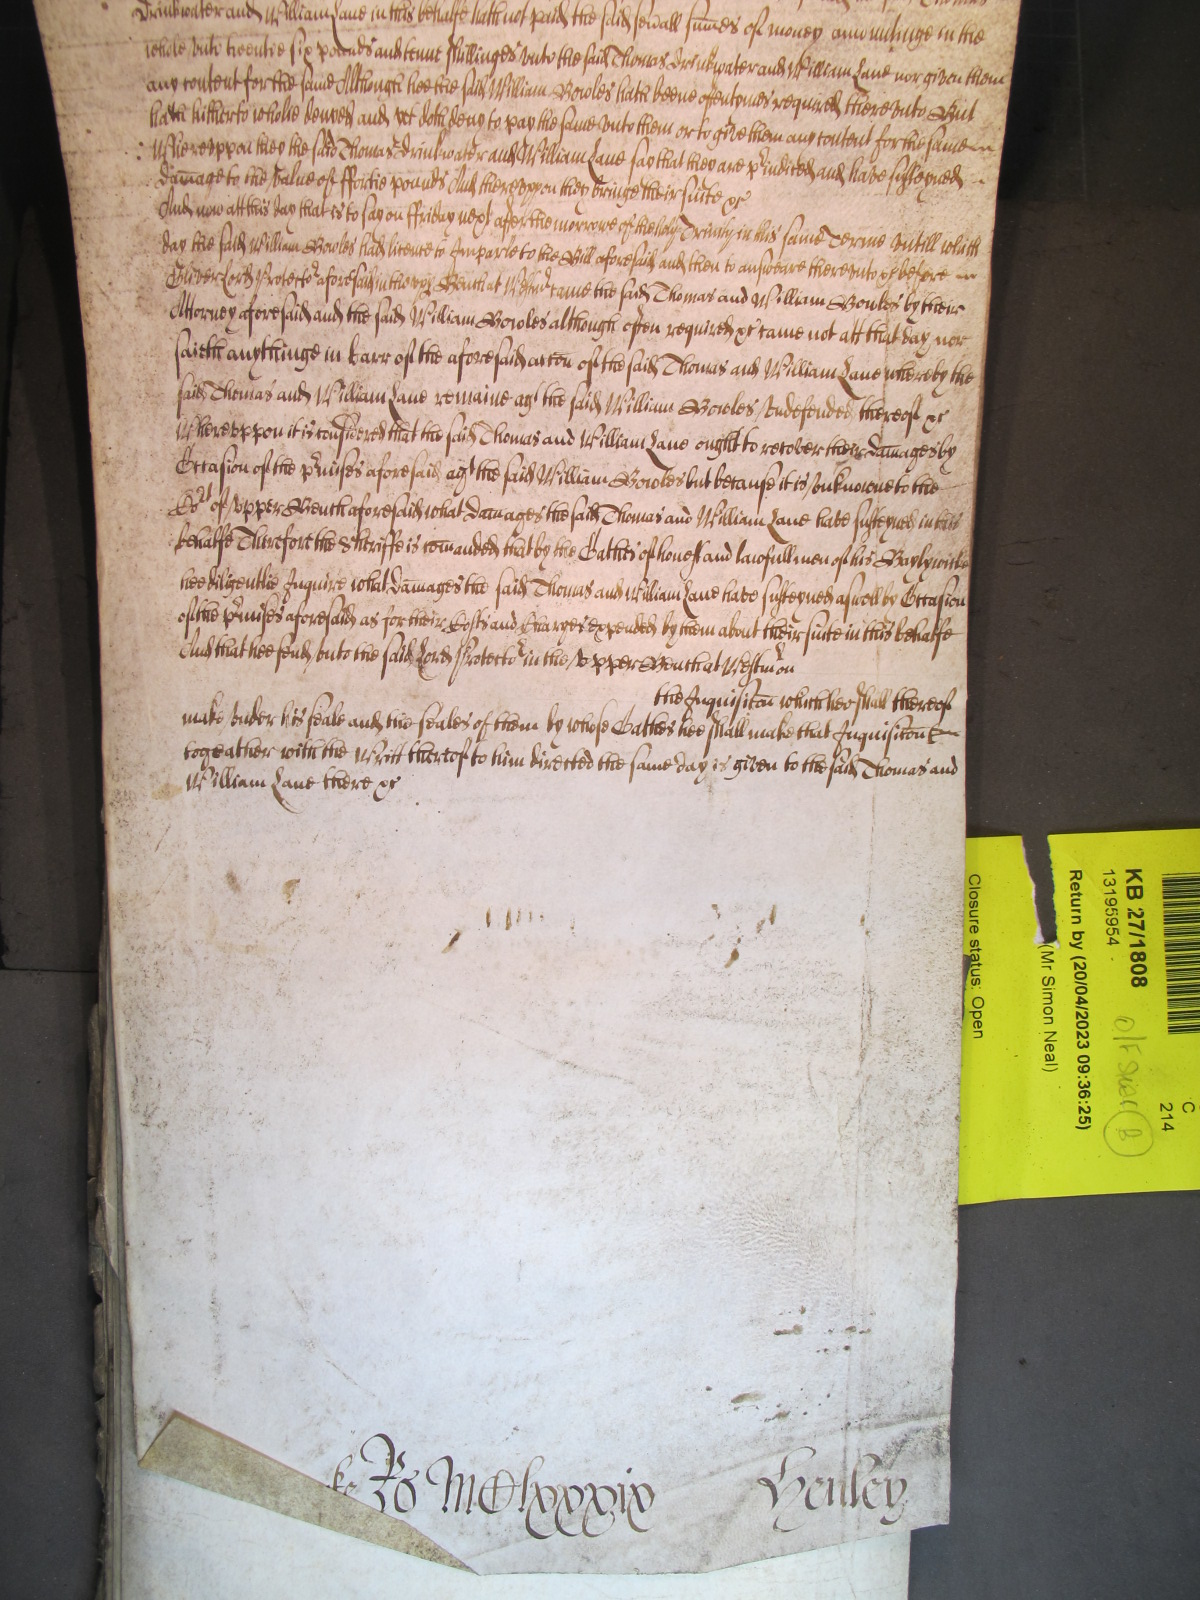 Drinkwater and William Lane in this behalfe hath not paid the said severall sumes of money amountinge in the
whole unto twentie six pounds and tenne shillinges unto the said Thomas Drinkwater and William Lane nor given them
any content for the same Although hee the said William Bowles hath beene oftentymes required thereunto But
hath hitherto wholie denyed and yet doth deny to pay the same unto them or to give them any content for the same
Whereuppon they the said Thomas Drinkwater and William Lane say that they are p'iudiced and have susteyned
damage to the value of ffortie pounds And thereuppon they bringe their suite &c
And now att this day that is to say on ffriday next after the morrowe of the holy Trinity in this same Terme untill which
day the said William Bowles had licence to Imparle to the Bill aforesaid and then to answeare thereunto &c before
Oliver Lord Protector aforesaid in the upp Bench at Westmr came the said Thomas and William Bowles by their
Attorney aforesaid and the said William Bowles although often required &c came not att that day nor
saieth anythinge in barr of the aforesaid accon of the said Thomas and William Lane whereby the
said Thomas and William Lane remaine agt the said William Bowles Undefended thereof &c
Whereuppon it is considered that the said Thomas and William Lane ought to recover their damages by
Occasion of the p'misses aforesaid agt the said William Bowles but because it is Unknowne to the
Cort of Upper Bench aforesaid what damages the said Thomas and William Lane have susteyned in this
behalfe Therefore the Sheriffe is comanded that by the Oathes of honest and lawfull men of his Baylywicke
hee diligentlie Inquire what damages the said Thomas and William Lane have susteyned aswell by Occasion
of the p'misses aforesaid as for their Costs and Charges expended by them about their suite in this behalfe
And that hee send unto the said Lord Protector in the Upper Bench at Westmr on
the Inquisicon which hee shall thereof
make under his seale and the seales of them by whose Oathes hee shall make that Inquisicon
togeather with the Writt thereof to him directed the same day is given to the said Thomas and
William Lane there &c
Ro MClxxxix Henley
KB 27/1808
13195954
Return by (20/04/2023 09:36:25)
(Mr Simon Neal)
Closure status: Open
C
214